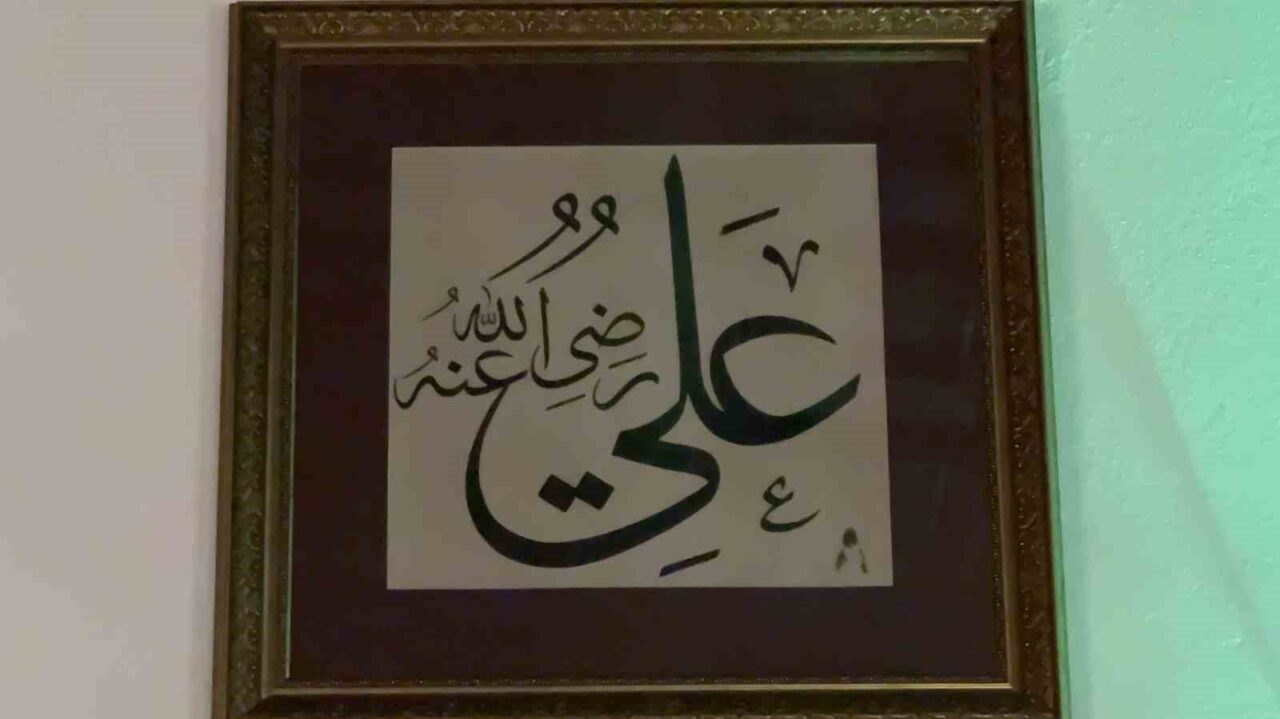 عَلِي
رَضِيَ اللهُ عَنهُ